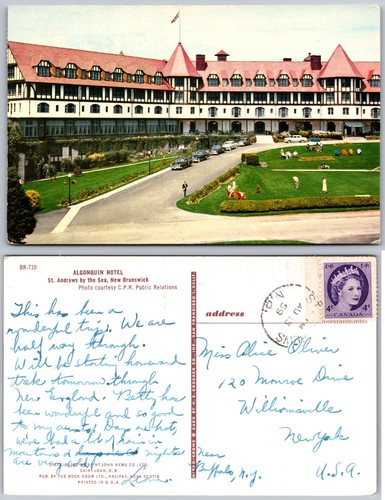 BR-710
ALGONQUIN HOTEL
St. Andrews by the Sea, New Brunswick
Photo courtesy C.P.R. Public Relations
This has been a
wonderful trip. We are
half way through.
Will be starting homeward
trek tomorrow through
New England. Beth has
been wonderful and so good
to my aunt. Days are hot,
We've had a bit of rain in
mountains and nights
are very
DISTRIBUTED BY SAINT JOHN NEWS CO., LTD.
SAINT JOHN, N.B.
PUB. BY THE BOOK ROOM LTD., HALIFAX, NOVA SCOTIA
PRINTED IN U.S.A.
address
CANADA
4¢ 4¢
Miss Alice Oliver
120 Monroe Drive
Williamsville
New York
near
Buffalo, N.Y.
U.S.A.